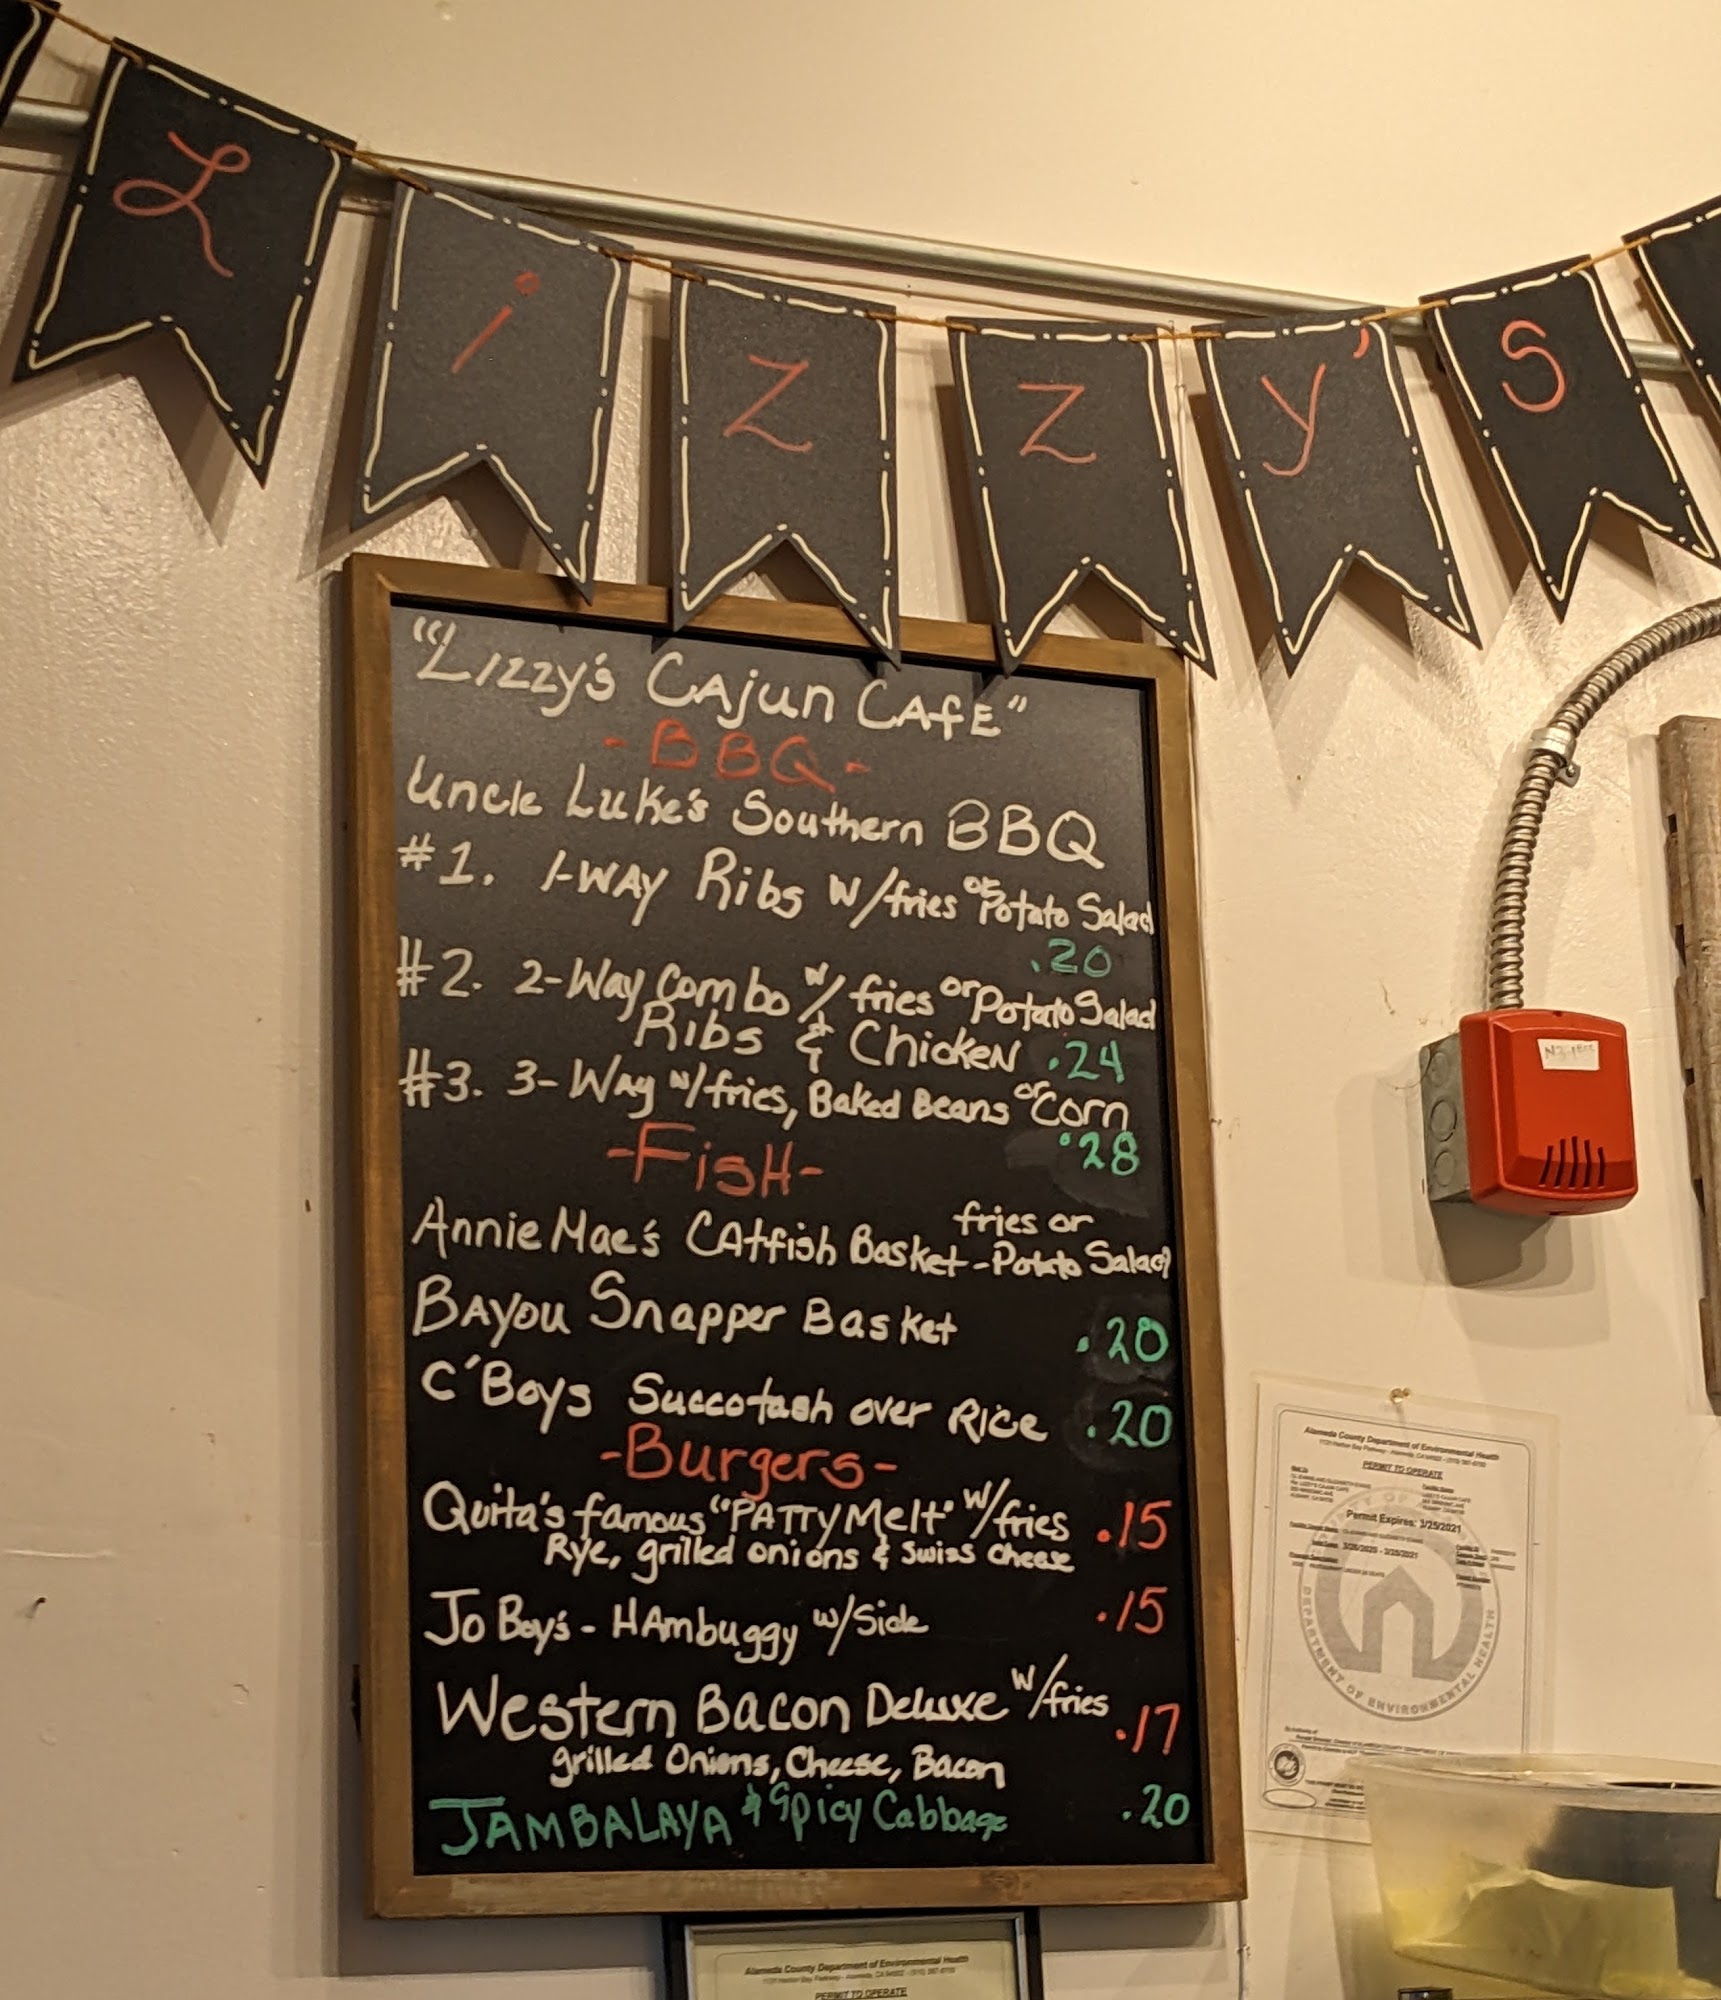 Lizzy's
"Lizzy's Cajun Cafe"
-BBQ-
Uncle Luke's Southern BBQ
#1. 1-Way Ribs w/fries or Potato Salad
.20
#2. 2-Way Combo w/ fries or Potato Salad
Ribs & Chicken .24
#3. 3-Way w/fries, Baked Beans or Corn
.28
-Fish-
Annie Mae's Catfish Basket - fries or Potato Salad
Bayou Snapper Basket .20
C'Boys Succotash over Rice .20
-Burgers-
Quita's famous "Patty Melt" w/fries .15
Rye, grilled onions & Swiss Cheese
Jo Boy's - Hambuggy w/Side .15
Western Bacon Deluxe w/fries .17
grilled Onions, Cheese, Bacon
Jambalaya & Spicy Cabbage .20
Alameda County Department of Environmental Health
PERMIT TO OPERATE
Permit Expires: 3/25/2021
DEPARTMENT OF ENVIRONMENTAL HEALTH
Alameda County Department of Environmental Health
PERMIT TO OPERATE